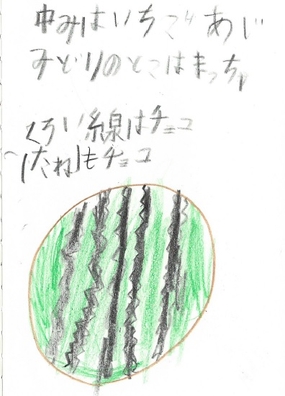 中みはいちごあじ
みどりのとこはまっちゃ
くろい線はチョコ
たねもチョコ